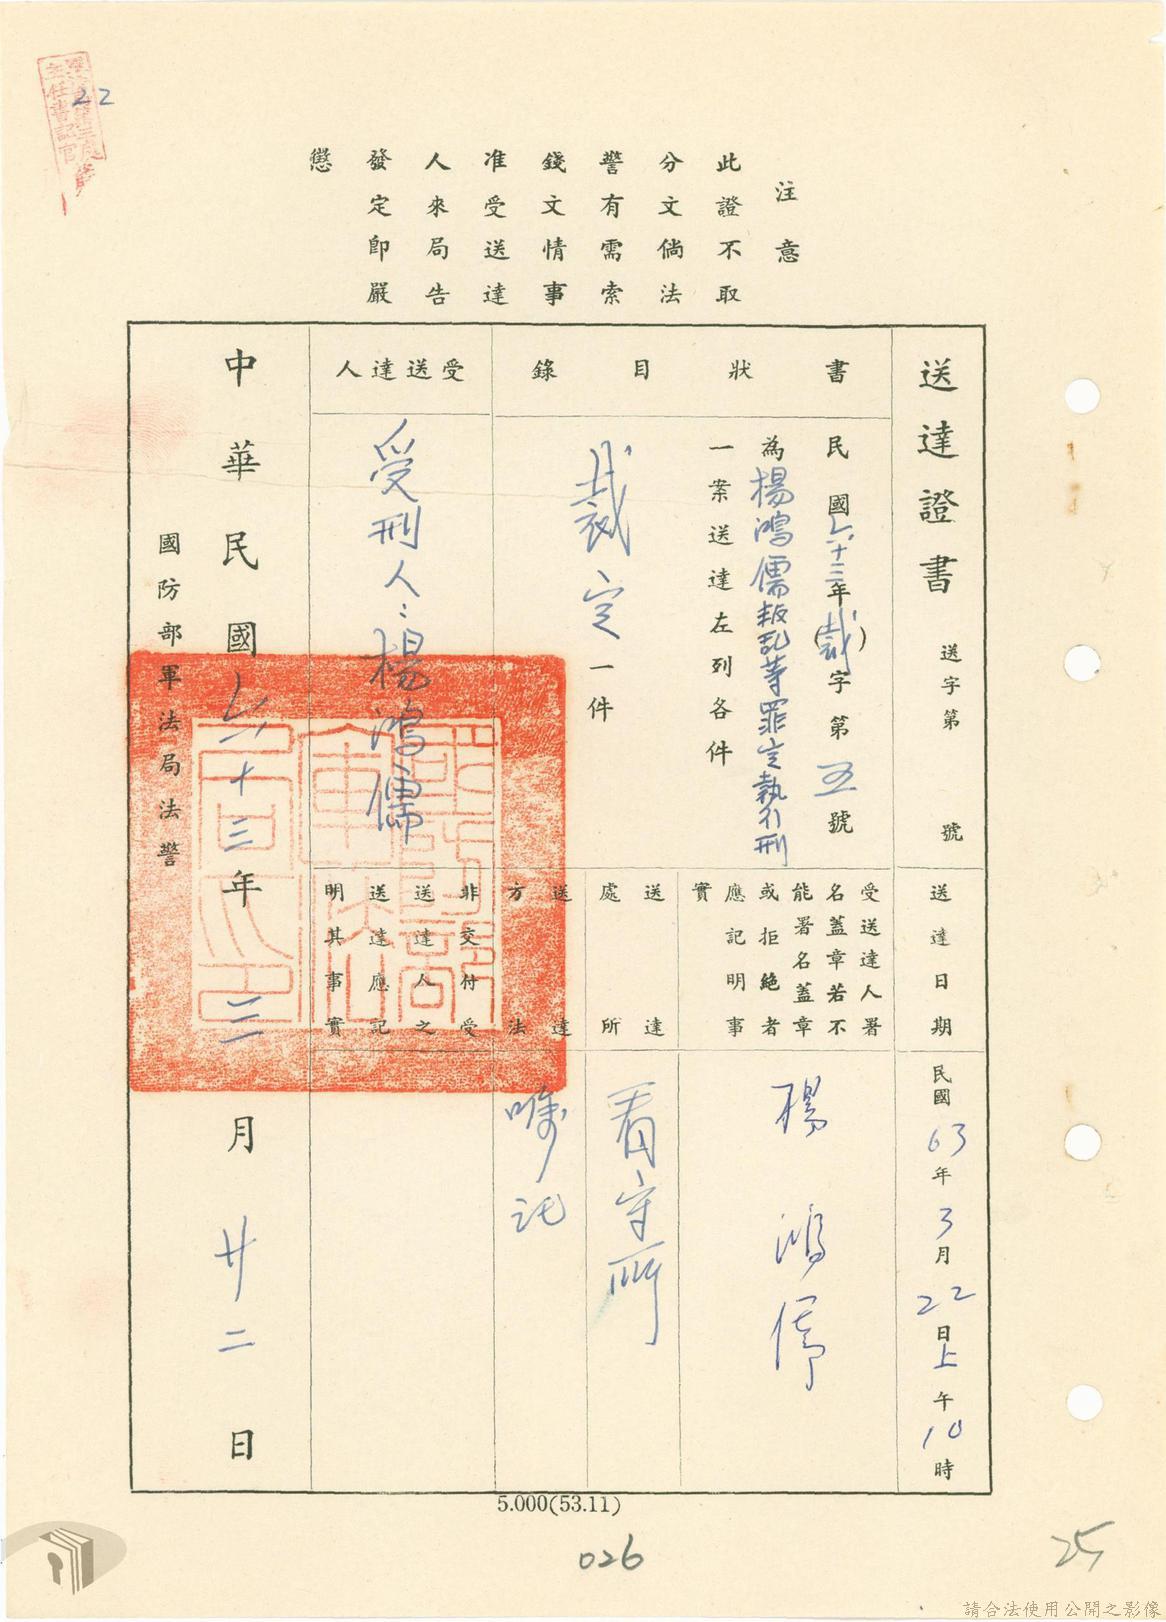 22
注意
此證不取
分文倘法
警有需索
錢文情事
准受送達
人來局告
發定即嚴
懲
送達證書
送字第 號
書狀目錄
民國六十三年(裁)字第五號
為楊鴻儒叛乱等罪定執行刑
一案送達左列各件
裁定一件
受送達人
受刑人:楊鴻儒
送達日期
民國63年3月22日上午10時
受送達人署
名蓋章若不
能署名蓋章
或拒絕者
應記明事
實
楊鴻儒
送達
處所
看守所
送達
方法
嘱託
非交付受
送達人之
送達應記
明其事實
中華民國六十三年三月廿二日
國防部軍法局法警
5.000(53.11)
026
25
請合法使用公開之影像